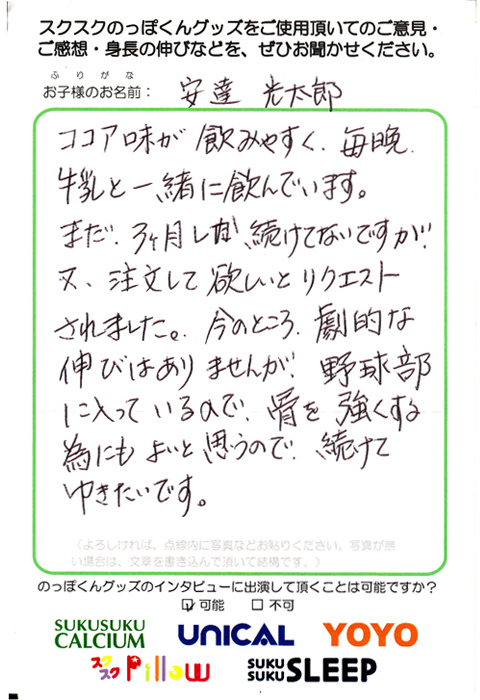 スクスクのっぽくんグッズをご使用頂いてのご意見・
ご感想・身長の伸びなどを、ぜひお聞かせください。
ふりがな
お子様のお名前： 安達 光太郎
ココア味が飲みやすく、毎晩、
牛乳と一緒に飲んでいます。
まだ、3ヶ月しか続けてないですが、
又、注文して欲しいとリクエスト
されました。今のところ、劇的な
伸びはありませんが、野球部
に入っているので、骨を強くする
為にもよいと思うので、続けて
ゆきたいです。
（よろしければ、点線内に写真などお貼りください。写真が無
い場合は、文章を書き込んで頂いて結構です。）
のっぽくんグッズのインタビューに出演して頂くことは可能ですか？
☑ 可能 □ 不可
SUKUSUKU CALCIUM UNICAL YOYO
スクスク Pillow SUKU SUKU SLEEP